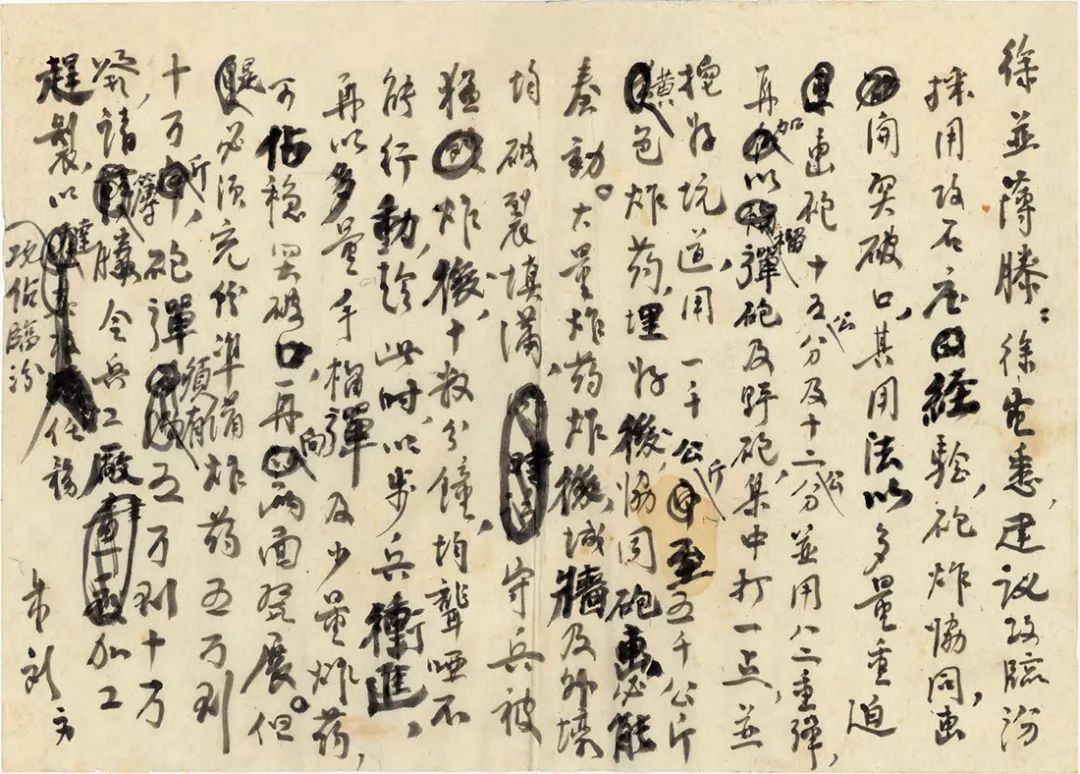 徐並薄滕：徐生悉，建议攻臨汾
採用攻石庄经驗，砲炸協同，击
開突破口，其用法以多量重迫
击砲十五公分及十二公分並用八二重弹，
再加以榴彈砲及野砲集中打一点，並
挖好坑道，用一千公斤至五千公斤
黄色炸药，埋好後，協同砲击，必能
奏動。大量炸药炸後，城牆及外壕
均破裂填满，守兵被
猛炸後，十数分鐘，均聋哑不
能行動，趁此时，以步兵衝進，
再以多量手榴彈及少量炸药，
可佔稳突破口，再向两面發展。但
是必须充份準備炸药五万到
十万斤，砲彈須有五万到十万
發，請薄、滕令兵工廠加工
趕製，以達攻佔臨汾任務
朱